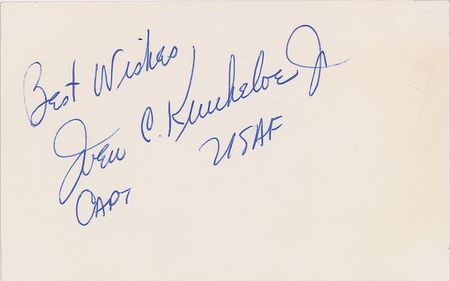 Best Wishes
Iven C. Kincheloe Jr
Capt USAF